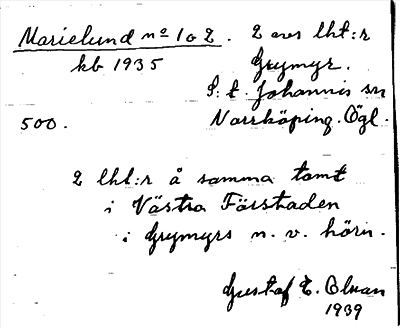 Marielund nº 1 o 2. 2 avs lht:r
kb 1935 Grymyr.
S:t Johannis sn
500. Norrköping. Ögl.
2 lht:r å samma tomt
i Västra Förstaden
i Grymyrs n. v. hörn.
Gustaf E.
1939